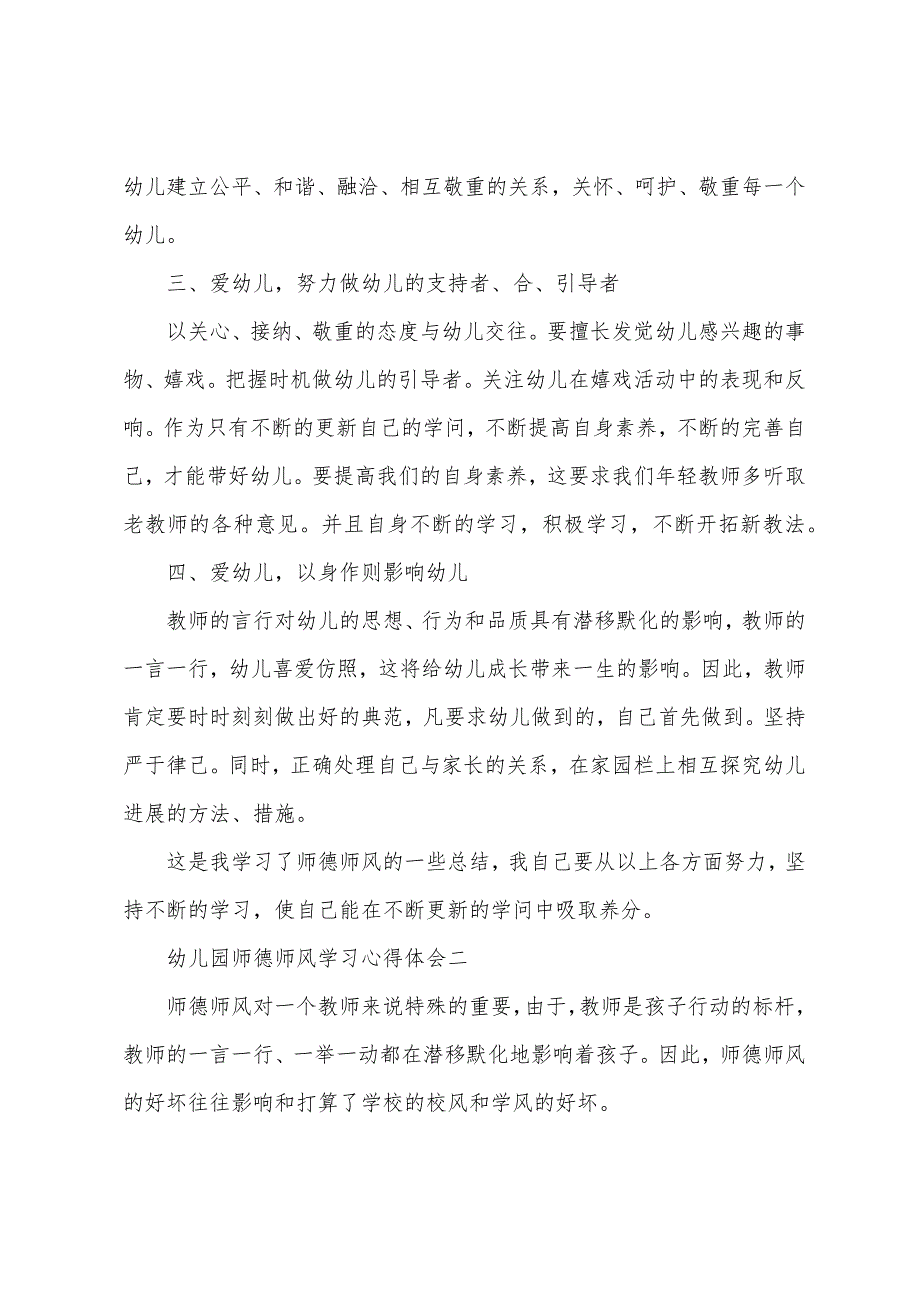 幼儿建立公平、和谐、融洽、相互敬重的关系，关怀、呵护、敬重每一个
幼儿。
三、爱幼儿，努力做幼儿的支持者、合、引导者
以关心、接纳、敬重的态度与幼儿交往。要擅长发觉幼儿感兴趣的事
物、嬉戏。把握时机做幼儿的引导者。关注幼儿在嬉戏活动中的表现和反
响。作为只有不断的更新自己的学问，不断提高自身素养，不断的完善自
己，才能带好幼儿。要提高我们的自身素养，这要求我们年轻教师多听取
老教师的各种意见。并且自身不断的学习，积极学习，不断开拓新教法。
四、爱幼儿，以身作则影响幼儿
教师的言行对幼儿的思想、行为和品质具有潜移默化的影响，教师的
一言一行，幼儿喜爱仿照，这将给幼儿成长带来一生的影响。因此，教师
肯定要时时刻刻做出好的典范，凡要求幼儿做到的，自己首先做到。坚持
严于律己。同时，正确处理自己与家长的关系，在家园栏上相互探究幼儿
进展的方法、措施。
这是我学习了师德师风的一些总结，我自己要从以上各方面努力，坚
持不断的学习，使自己能在不断更新的学问中吸取养分。
幼儿园师德师风学习心得体会二
师德师风对一个教师来说特殊的重要，由于，教师是孩子行动的标杆，
教师的一言一行、一举一动都在潜移默化地影响着孩子。因此，师德师风
的好坏往往影响和打算了学校的校风和学风的好坏。